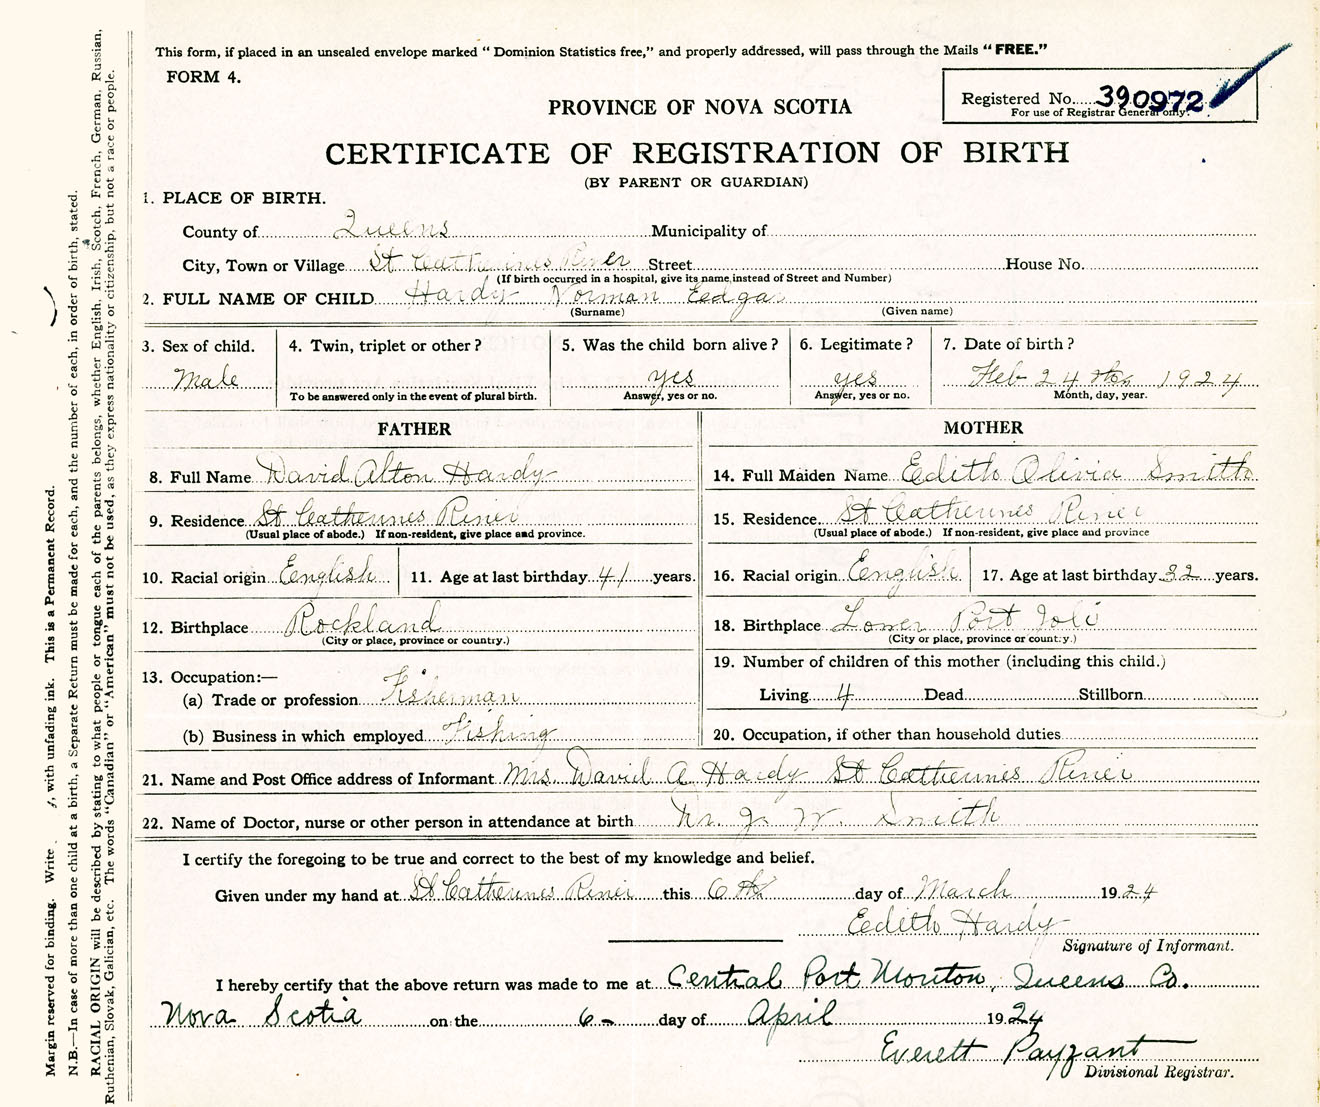 This form, if placed in an unsealed envelope marked " Dominion Statistics free," and properly addressed, will pass through the Mails " FREE."
FORM 4.
Registered No. 390972
For use of Registrar General only.
PROVINCE OF NOVA SCOTIA
CERTIFICATE OF REGISTRATION OF BIRTH
(BY PARENT OR GUARDIAN)
1. PLACE OF BIRTH.
County of Queens Municipality of
City, Town or Village St Catherines River Street House No.
(If birth occurred in a hospital, give its name instead of Street and Number)
2. FULL NAME OF CHILD Hardy Norman Eedgar
(Surname) (Given name)
3. Sex of child. 4. Twin, triplet or other? 5. Was the child born alive? 6. Legitimate? 7. Date of birth?
Male yes yes Feb 24 th 1924
To be answered only in the event of plural birth. Answer, yes or no. Answer, yes or no. Month, day, year.
FATHER MOTHER
8. Full Name David Alton Hardy 14. Full Maiden Name Edith Olivia Smith
9. Residence St Catherines River 15. Residence St Catherines River
(Usual place of abode.) If non-resident, give place and province. (Usual place of abode.) If non-resident, give place and province
10. Racial origin English 11. Age at last birthday 41 years. 16. Racial origin English 17. Age at last birthday 32 years.
12. Birthplace Rockland 18. Birthplace Lower Port Joli
(City or place, province or country.) (City or place, province or country.)
13. Occupation:— 19. Number of children of this mother (including this child.)
(a) Trade or profession Fisherman Living 4 Dead Stillborn
(b) Business in which employed Fishing 20. Occupation, if other than household duties
21. Name and Post Office address of Informant Mrs. David A Hardy St Catherines River
22. Name of Doctor, nurse or other person in attendance at birth J. W. Smith
I certify the foregoing to be true and correct to the best of my knowledge and belief.
Given under my hand at St Catherines River this 6 th day of March 1924
Eedith Hardy
Signature of Informant.
I hereby certify that the above return was made to me at Central Port Mouton, Queens Co.
Nova Scotia on the 6 day of April 1924
Everett Payzant
Divisional Registrar.
Margin reserved for binding. Write with unfading ink. This is a Permanent Record.
N.B.—In case of more than one child at a birth, a Separate Return must be made for each, and the number of each, in order of birth, stated.
RACIAL ORIGIN will be described by stating to what people or tongue each of the parents belongs, whether English, Irish, Scotch, French, German, Russian,
Ruthenian, Slovak, Galician, etc. The words "Canadian" or "American" must not be used, as they express nationality or citizenship, but not a race or people.